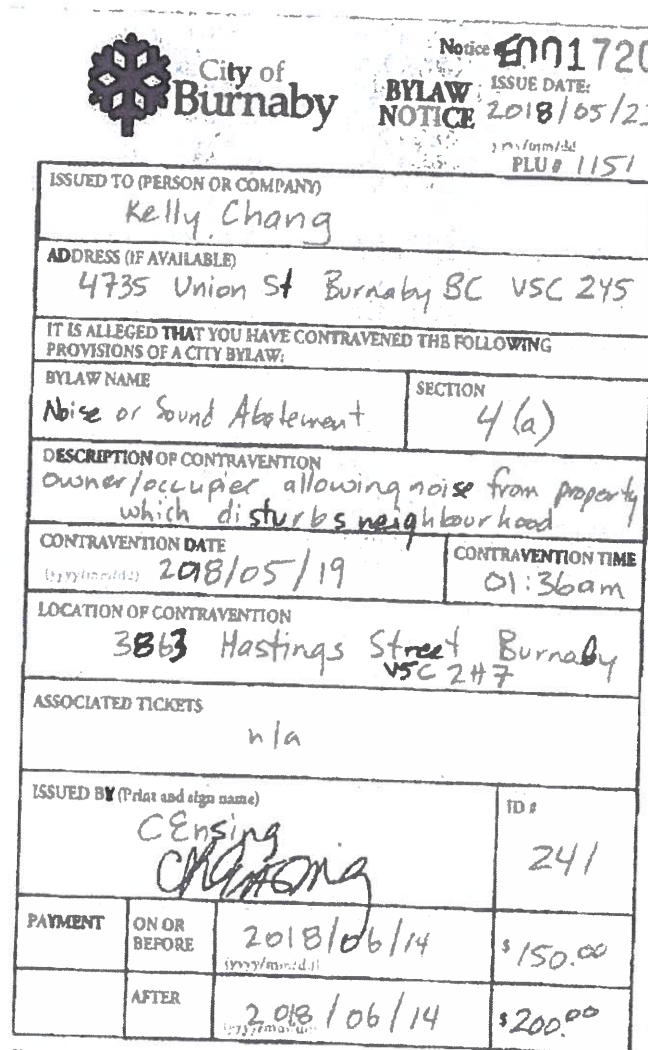 City of
Burnaby
BYLAW
NOTICE
Notice E001720
ISSUE DATE:
2018/05/23
yyyy/mm/dd
PLU # 1151
ISSUED TO (PERSON OR COMPANY)
Kelly Chang
ADDRESS (IF AVAILABLE)
4735 Union St Burnaby BC V5C 2Y5
IT IS ALLEGED THAT YOU HAVE CONTRAVENED THE FOLLOWING
PROVISIONS OF A CITY BYLAW:
BYLAW NAME
Noise or Sound Abatement
SECTION
4 (a)
DESCRIPTION OF CONTRAVENTION
owner/occupier allowing noise from property
which disturbs neighbourhood
CONTRAVENTION DATE
(yyyy/mm/dd) 2018/05/19
CONTRAVENTION TIME
01:36am
LOCATION OF CONTRAVENTION
3863 Hastings Street Burnaby
V5C 2H7
ASSOCIATED TICKETS
n/a
ISSUED BY (Print and sign name)
C Ensing
ID #
241
PAYMENT
ON OR
BEFORE
2018/06/14
(yyyy/mm/dd)
$150.00
AFTER
2018/06/14
$200.00